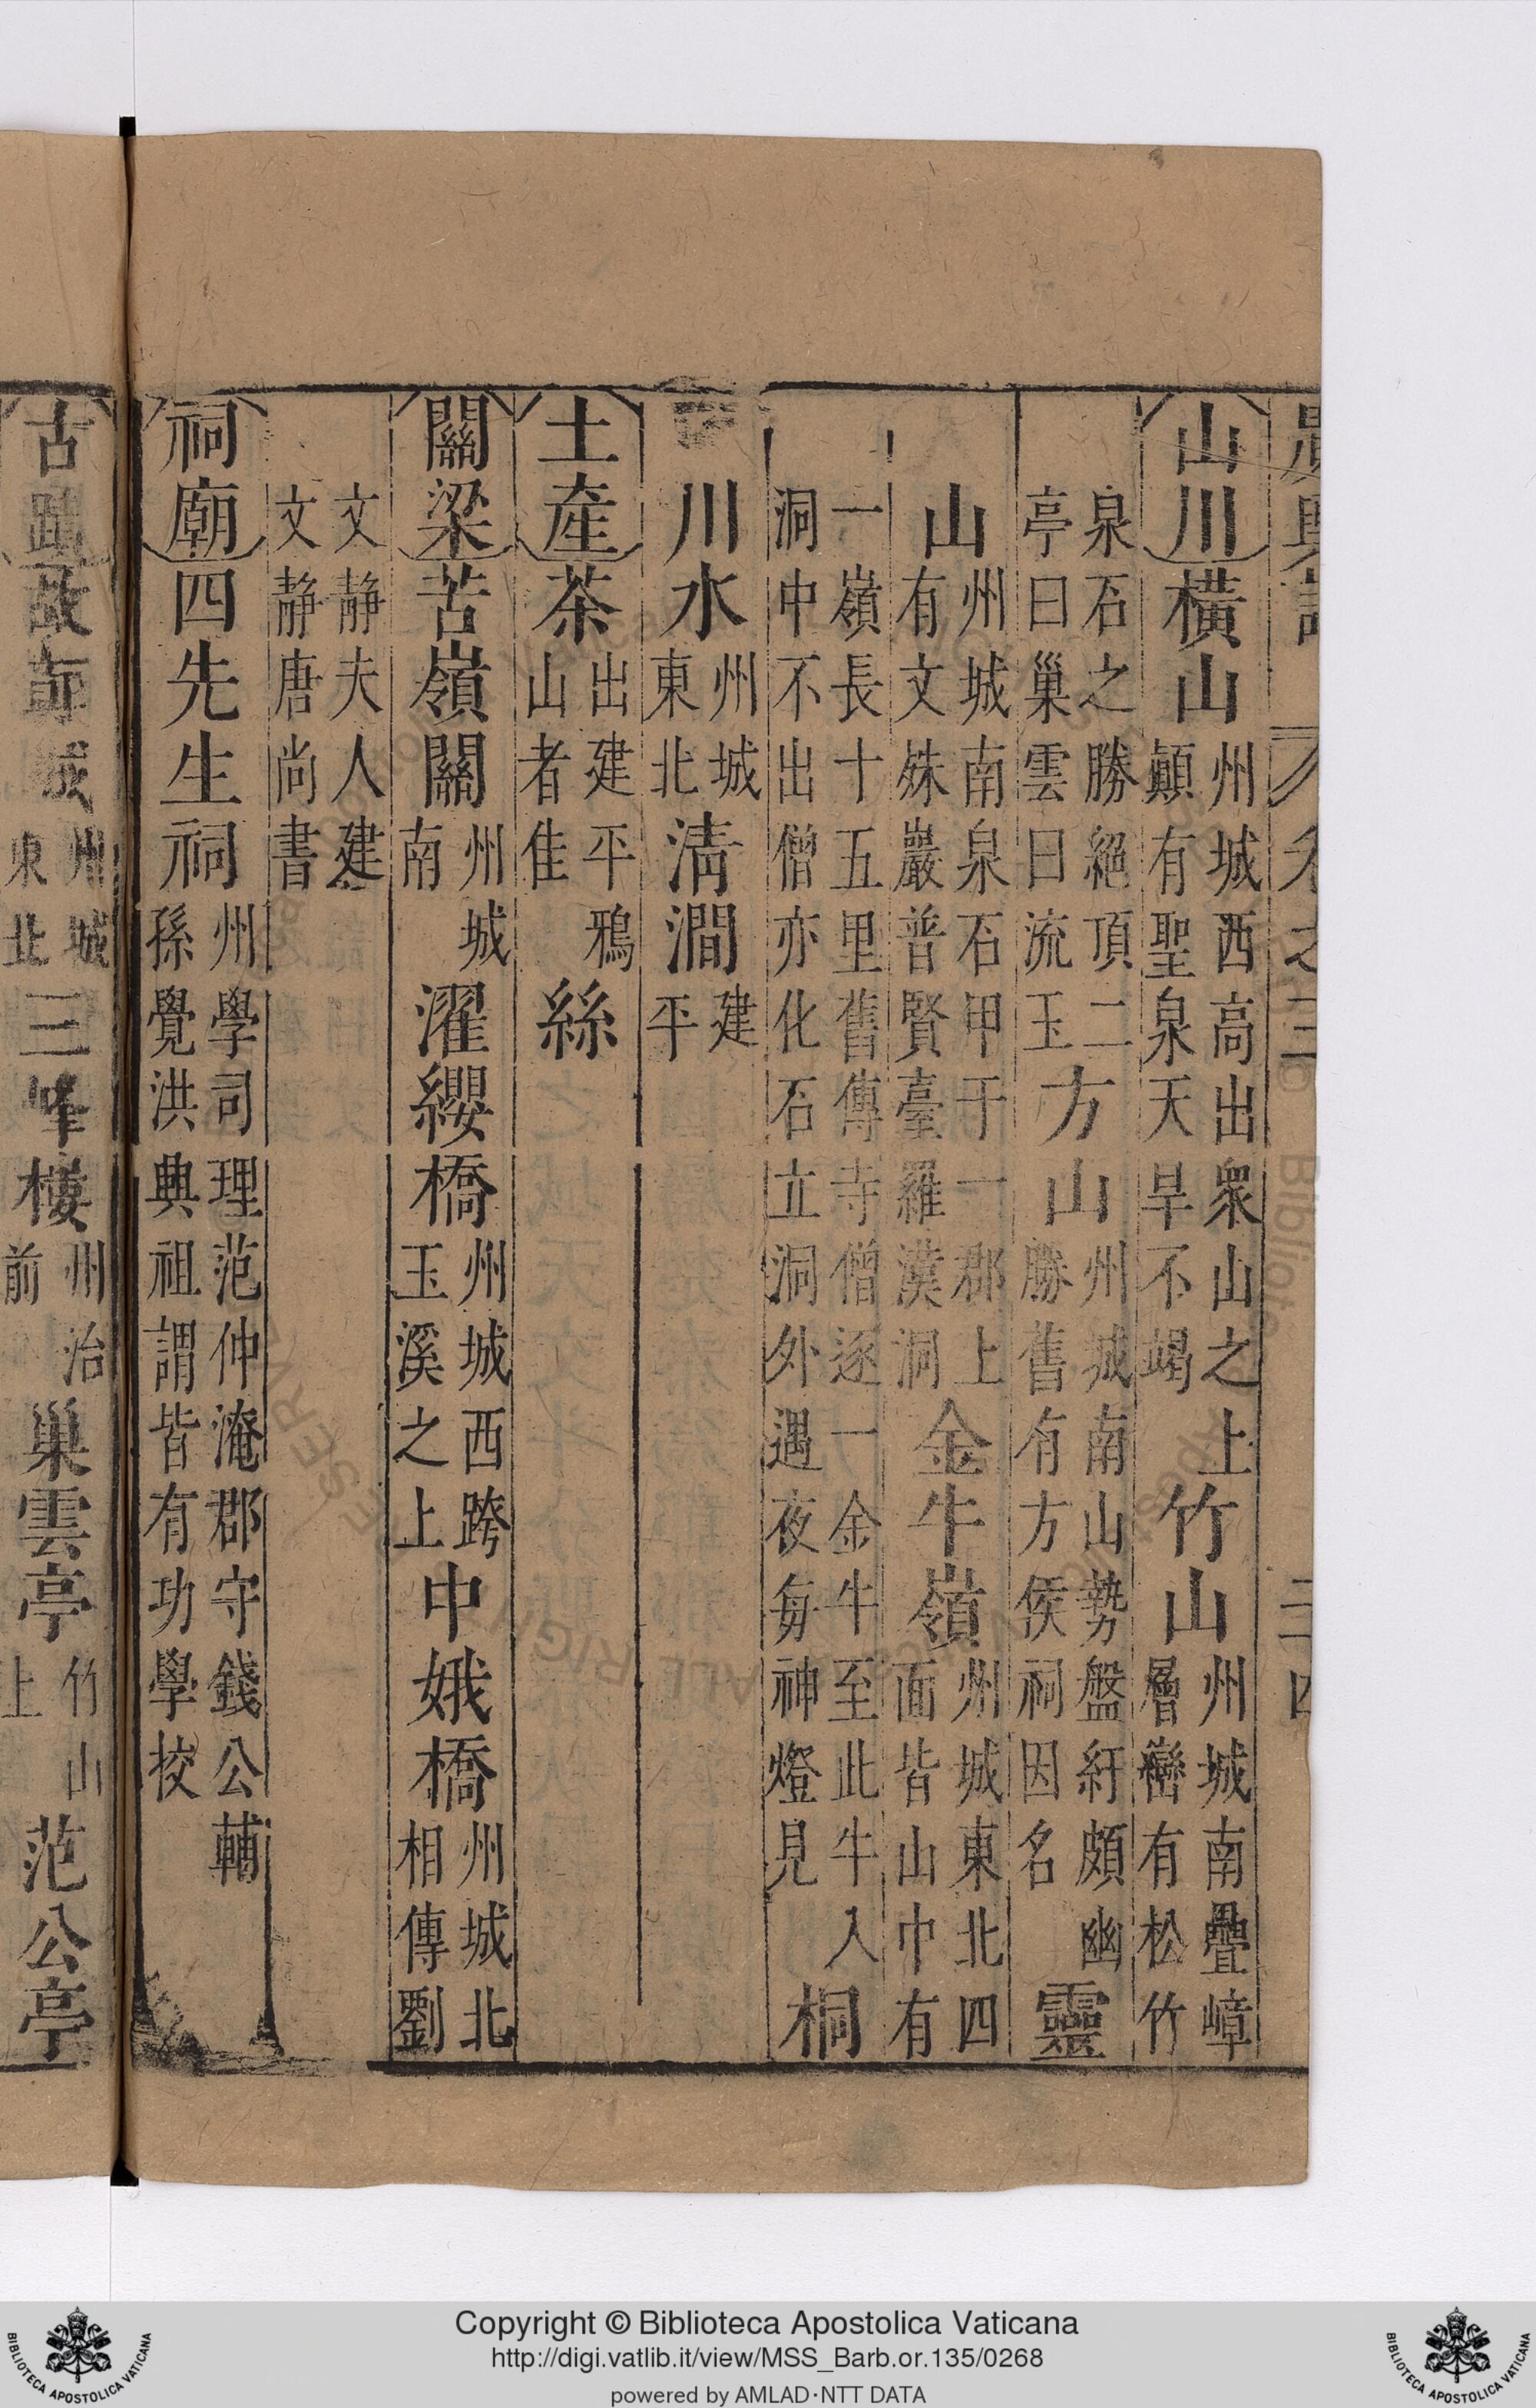 卷之三 二十四
山川橫山州城西高出衆山之上顚有聖泉天旱不竭竹山州城南疊嶂層巒有松竹
泉石之勝絕頂二亭曰巢雲曰流玉方山州城南山勢盤紆頗幽勝舊有方侯祠因名靈
山州城南泉石甲于一郡上有文殊巖普賢臺羅漢洞金牛嶺州城東北四面皆山中有
一嶺長十五里舊傳寺僧逐一金牛至此牛入洞中不出僧亦化石立洞外遇夜每神燈見桐
川水州城東北淸澗建平
土產茶出建平鴉山者佳絲
關梁苦嶺關州城南濯纓橋州城西跨玉溪之上中娥橋州城北相傳劉
文靜夫人建文靜唐尚書
祠廟四先生祠州學司理范仲淹郡守錢公輔孫覺洪興祖謂皆有功學校
古蹟故鄣城州城東北三峰樓州治前巢雲亭竹山上范公亭
Copyright © Biblioteca Apostolica Vaticana
http://digi.vatlib.it/view/MSS_Barb.or.135/0268
powered by AMLAD·NTT DATA
BIBLIOTECA APOSTOLICA VATICANA
BIBLIOTECA APOSTOLICA VATICANA